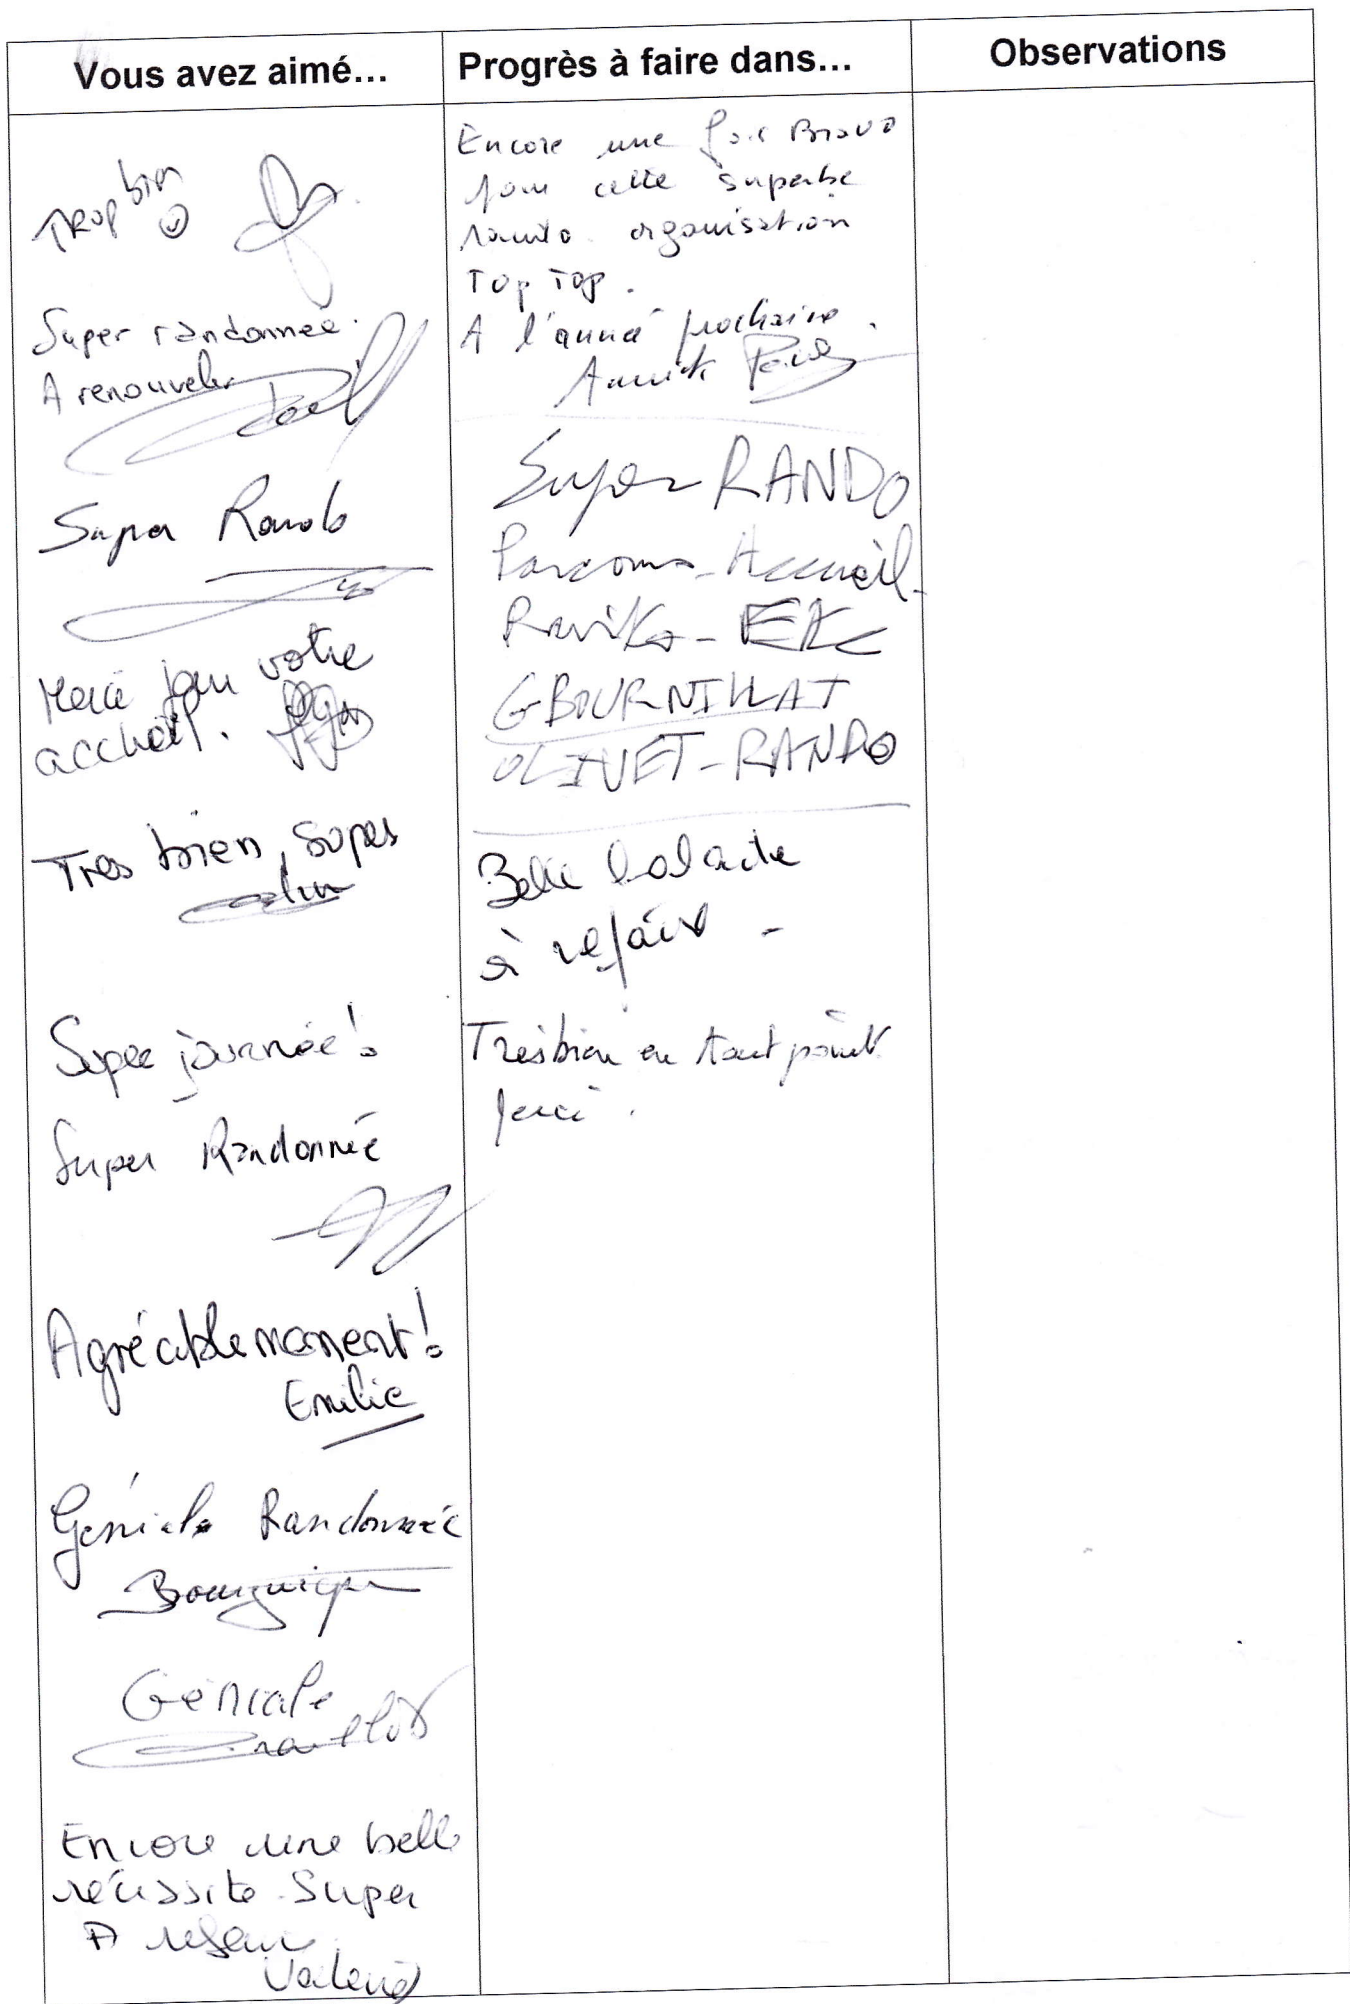 Vous avez aimé...
Progrès à faire dans...
Observations
TROP bien
Super randonnée.
A renouveler
Joël
Super Rando
Merci pour votre
accueil.
Tres bien, super
Super journée!
Super Randonnée
Agréable moment!
Emilie
Géniale Randonnée
Géniale
Encore une belle
réussite Super
A refaire
Valérie
Encore une fois Bravo
pour cette superbe
rando. organisation
Top Top.
A l'année prochaine.
Annick
Super RANDO
Parcours - Accueil -
Ravito - Etc
G BOURNILLAT
OLIVET-RANDO
Belle balade
à refaire -
Très bien en tout point
Merci.